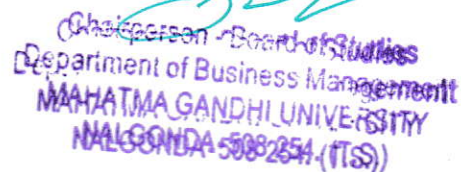 Chairperson - Board of Studies
Department of Business Management
MAHATMA GANDHI UNIVERSITY
NALGONDA-508 254. (TS)